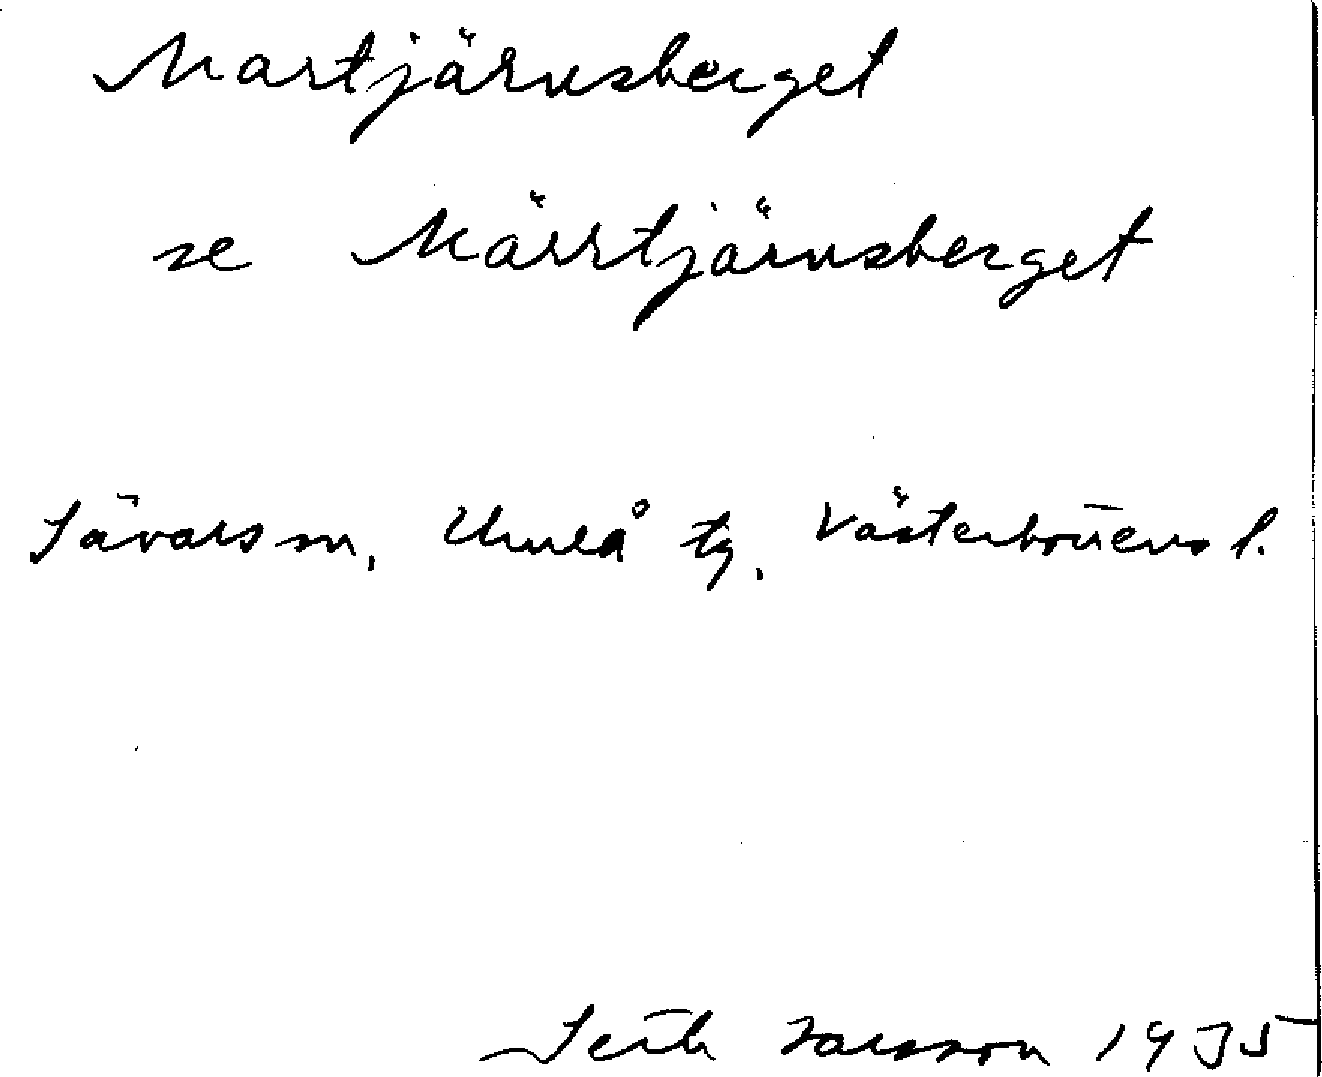 Martjärnsberget
se Märrtjärnsberget
Sävars sn, Umeå tg, Västerbottens l.
Seth Larsson 1935